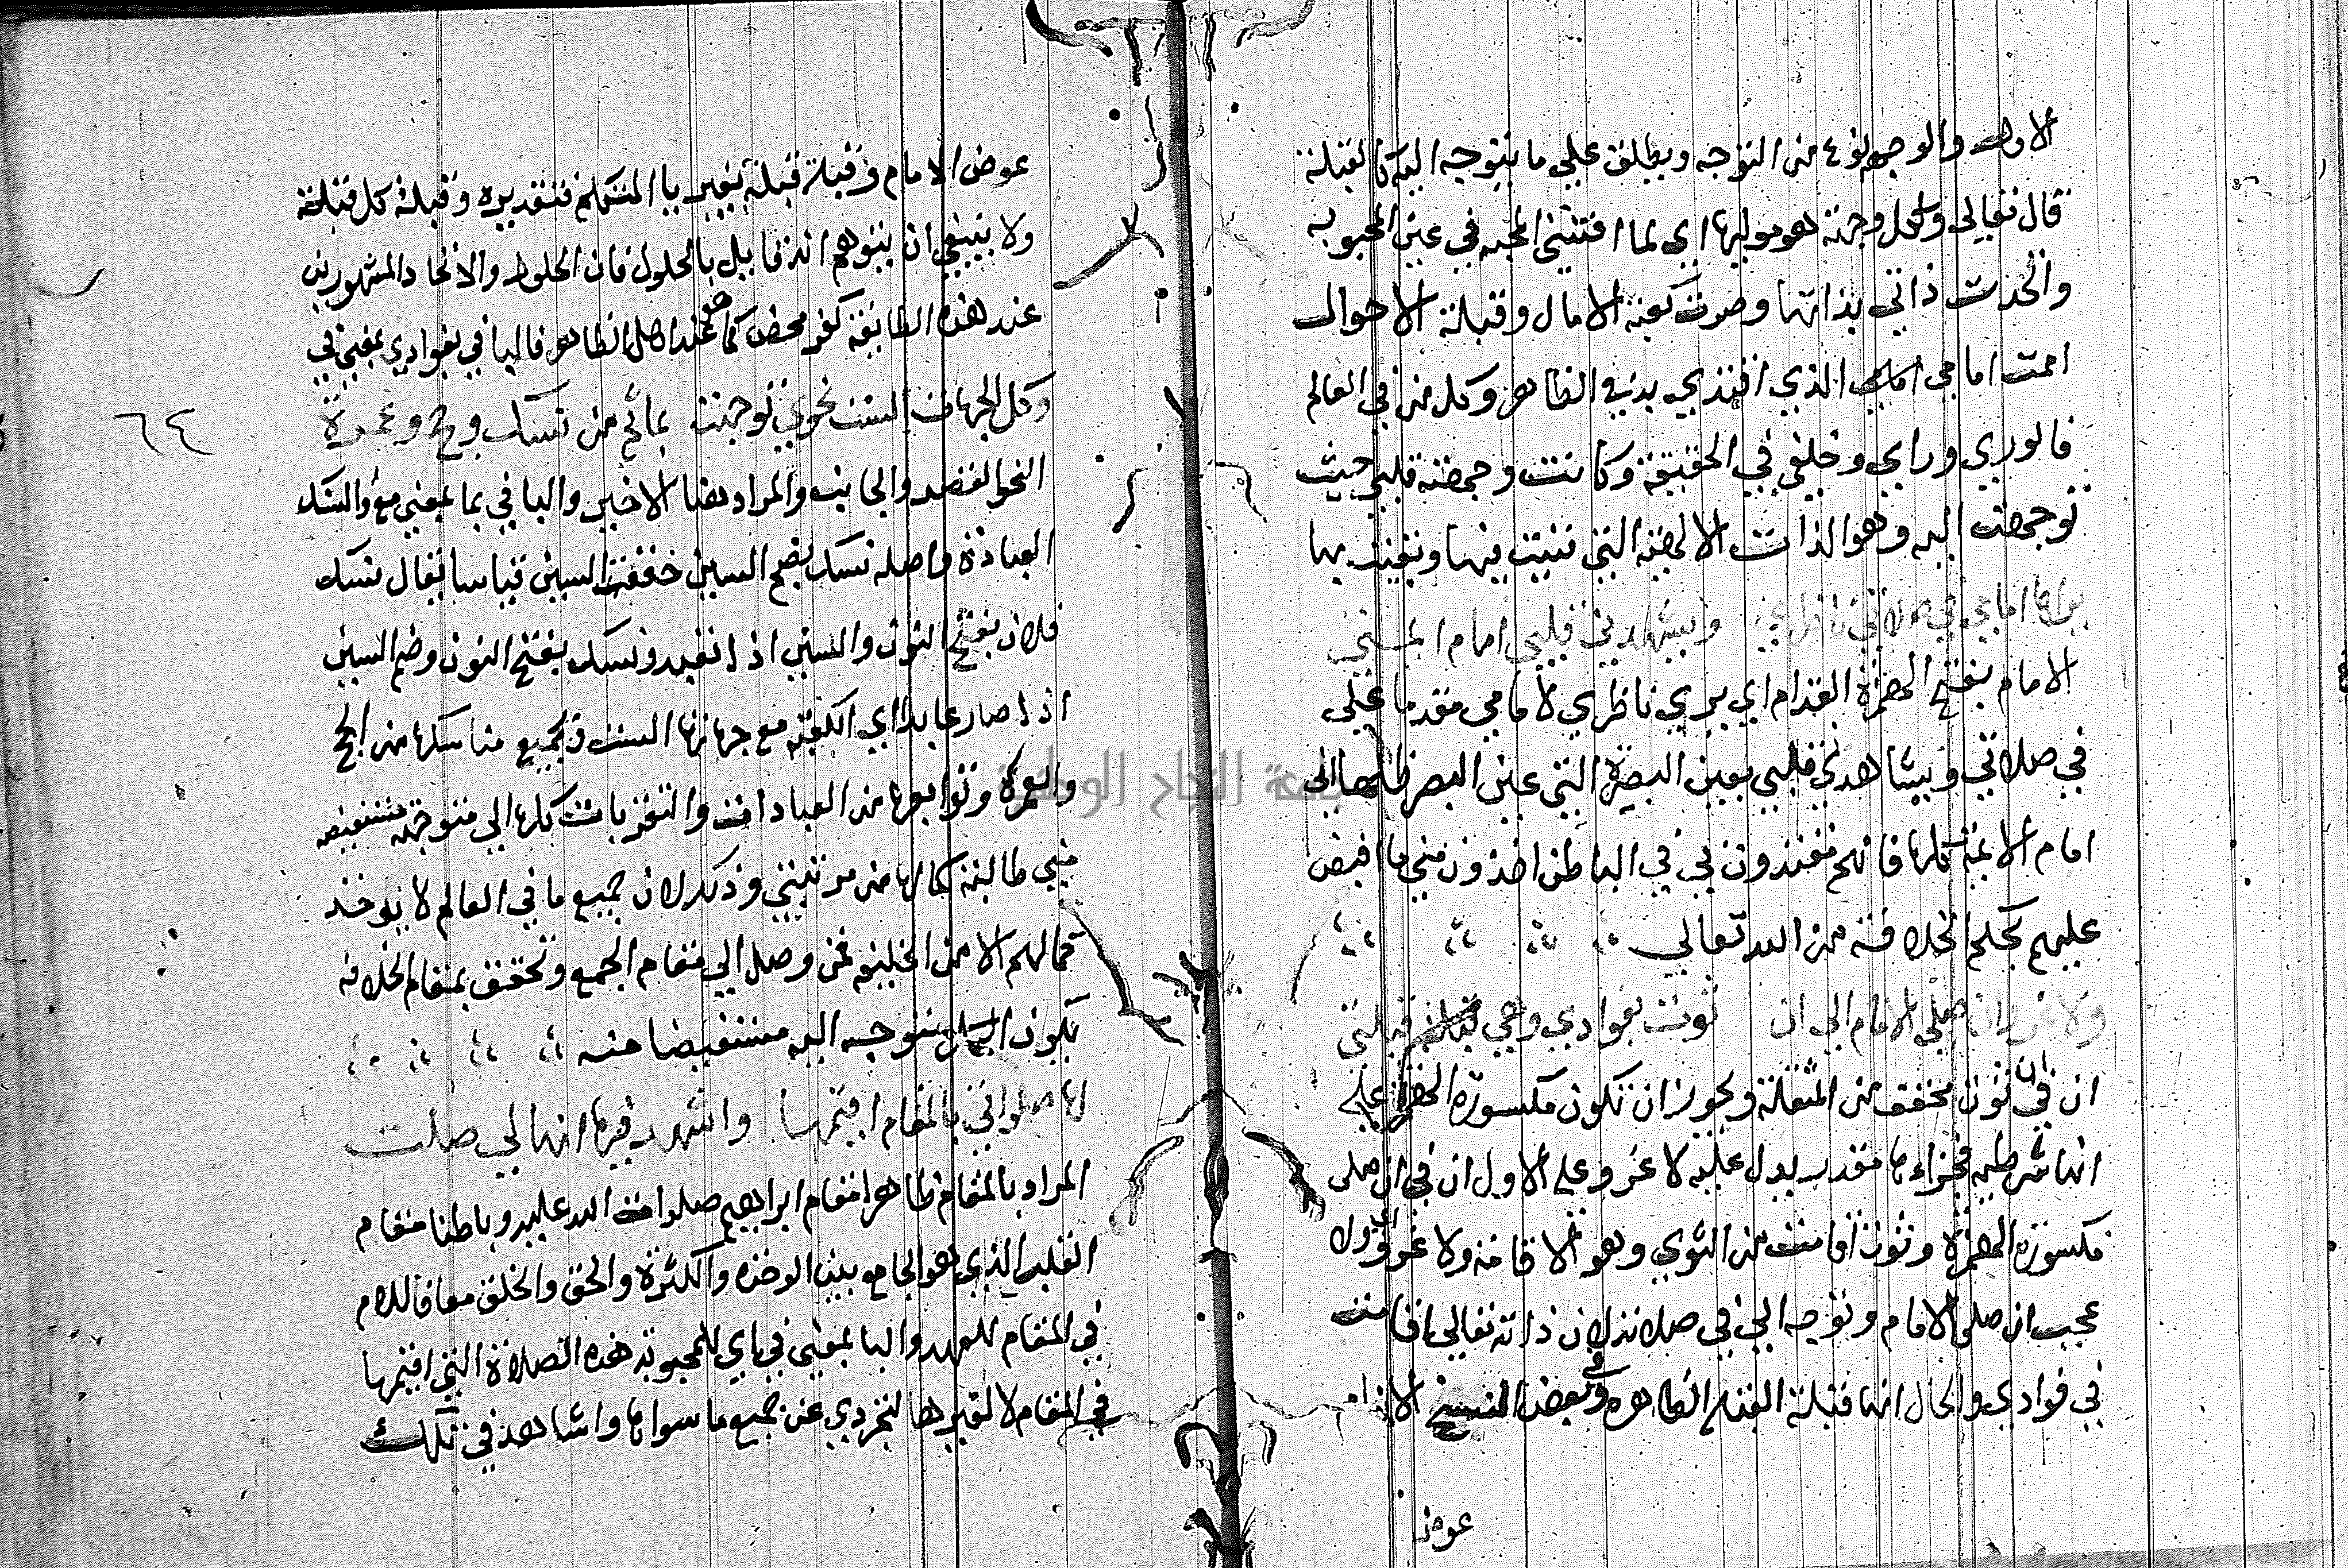 الاول والوجهة نوع من التوجه ويطلق علي ما يتوجه اليه كالقبلة
قال تعالي ولكل وجهة هو موليها اي لما افتتني المحبة في عين المحبوبه
واتحدت ذاتي بذاتها وصرت كعبة الامال وقبلة الاحوال
اممت امامي الذي اقتدي به في الظاهر وكل من في العالم
فالوري وراي وخلفي في الحقيقة وكانت وجهة قلبي حيث
توجهت اليه وهو الذات الالهية التي فنيت فيها وبقيت بها
يراها امامي في صلاتي ناظري ويشهدني قلبي امام ايمتي
الامام بفتح الهمزة القدام اي يري ناظري لامامي مقدما علي
في صلاتي ويشاهدني قلبي بعين البصيرة التي عين البصر
امام الائمة كلها فانهم مقتدون بي في الباطن اخذون مني ما افيض
عليهم بحكم الخلافة من الله تعالي
ولا غرو ان صلي الامام الي ان ثوت بفوادي وهي قبلة قبلتي
ان في ان ثوت مخفف من المثقلة ويجوز ان تكون مكسورة الهمزة علي
انها شرطيه فجزاءها مقدر يدل عليه لا غرو وعلي الاول ان في ان صلي
مكسورة الهمزة وثوت اقامت من الثوي وهو الاقامة ولا غرو اي لا
عجب ان صلي الامام وتوجه الي في صلاته لان ذاته تعالي اقامت
في فوادي والحال انها قبلة القبلة الظاهرة وفي بعض النسخ الانام
عوض
عوض الامام وقبلة قبلة بغير يا المتكلم فتقديره وقبلة كل قبلة
ولا ينبغي ان يتوهم انه قايل بالحلول فان الحلول والاتحاد المشهورين
عند هذه الطايفة كفر محض كما هو عند اهل الظاهر فالبا في بفوادي بمعني في
وكل الجهات الست نحوي توجهت بما تم من نسك وحج وعمرة
النحو القصد والجانب والمراد هنا الاخير والبا في بما بمعني مع والنسك
العبادة واصله نسك بضم السين خففت السين قياسا يقال نسك
فلان بفتح النون والسين اذا تعبد ونسك بفتح النون وضم السين
اذا صار عابدا اي الكعبة مع جهاتها الست وجميع مناسكها من الحج
والعمرة وتوابعها من العبادات والتقربات كلها الي متوجهة مستفيضه
مني طالبة كمالها من مرتبتي وذلك لان جميع ما في العالم لا يوخذ
كمالهم الا من الخليفة فمن وصل الي مقام الجمع وتحقق بمقام الخلافه
يكون الكل متوجه اليه مستفيضا منه
لها صلواتي بالمقام اقيمها واشهد فيها انها لي صلت
المراد بالمقام ظاهرا مقام ابراهيم صلوات الله عليه وباطنا مقام
القلب الذي هو الجامع بين الوحدة والكثرة والحق والخلق معا فاللام
في المقام للعهد والبا بمعني في اي للمحبوبة هذه الصلاة التي اقيمها
في المقام لا لغيرها لتجردي عن جميع ما سواها واشاهد في تلك
٦٤
جامعة النجاح الوطنية